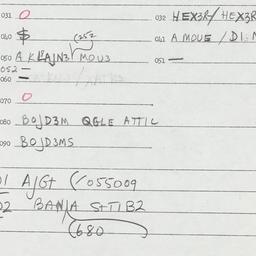 031 O 032 HEX3R/ HEX3R
040 $ 041 A MOUE / D1
(252
050 A KLAJN3 MOU3 051 —
052 —
060 —
070 O
080 BOJD3M QGLE ATTIC
090 BOJD3MS
01 AJGT (/055009
02 BANJA STTIB2
(680